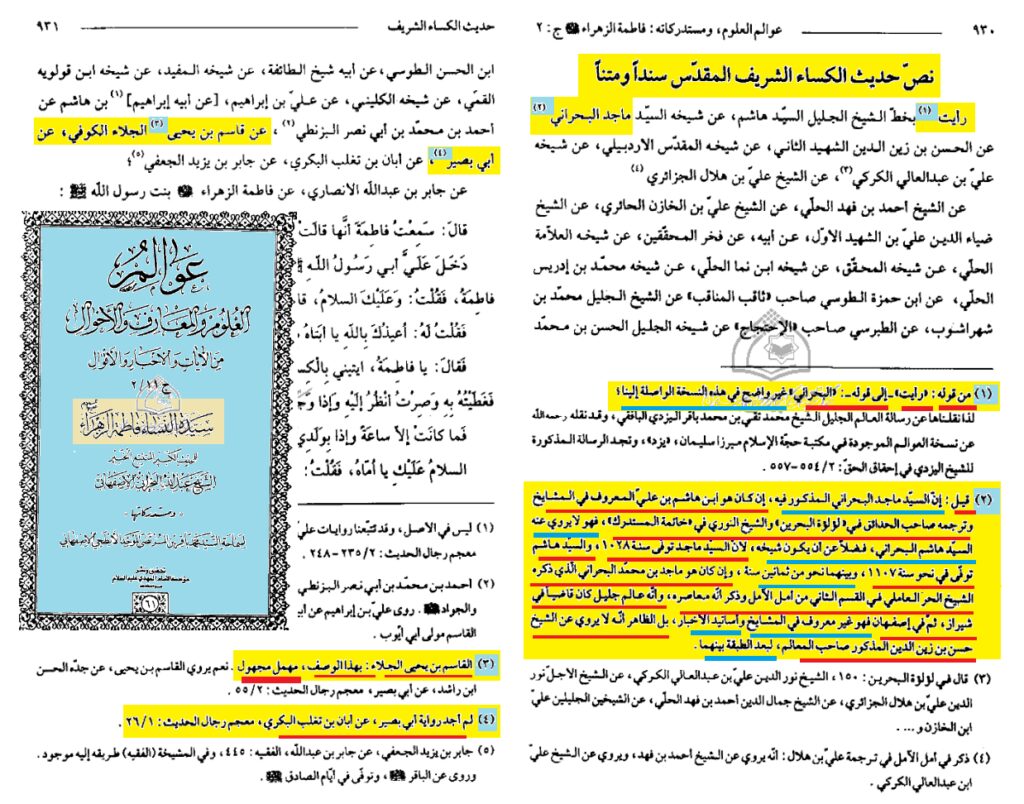 ٩٣٠
عوالم العلوم، ومستدركاته: فاطمة الزهراء ج: ٢
نصّ حديث الكساء الشريف المقدّس سنداً ومتناً
رأيت (١) بخطّ الشيخ الجليل السيّد هاشم، عن شيخه السيّد ماجد البحراني (٢)
عن الحسن بن زين الدين الشهيد الثاني، عن شيخه المقدّس الاردبيلي، عن شيخه
عليّ بن عبدالعالي الكركي (٣)، عن الشيخ عليّ بن هلال الجزائري (٤)
عن الشيخ أحمد بن فهد الحلّي، عن الشيخ عليّ بن الخازن الحائري، عن الشيخ
ضياء الدين عليّ بن الشهيد الاوّل، عن أبيه، عن فخر المحقّقين، عن شيخه العلاّمة
الحلّي، عن شيخه المحقّق، عن شيخه ابن نما الحلّي، عن شيخه محمّد بن إدريس
الحلّي، عن ابن حمزة الطوسي صاحب «ثاقب المناقب» عن الشيخ الجليل محمّد بن
شهراشوب، عن الطبرسي صاحب «الإحتجاج» عن شيخه الجليل الحسن بن محمّد
(١) من قوله: «رأيت» ـ إلى قوله ـ: «البحراني» غير واضح في هذه النسخة الواصلة إلينا؛
لذا نقلناها عن رسالة العالم الجليل الشيخ محمّد تقي بن محمّد باقر اليزدي البافقي، وقد نقله رحمه الله
عن نسخة العوالم الموجودة في مكتبة حجّة الإسلام ميرزا سليمان، «يزد»، وتجد الرسالة المذكورة
للشيخ اليزدي في إحقاق الحقّ: ٥٥٤/٢-٥٥٧.
(٢) قيل: إنّ السيّد ماجد البحراني المذكور فيه، إن كان هو ابن هاشم بن عليّ المعروف في المشايخ
وترجمه صاحب الحدائق في «لؤلؤة البحرين» والشيخ النوري في «خاتمة المستدرك»، فهو لا يروي عنه
السيّد هاشم البحراني، فضلاً عن أن يكون شيخه، لأنّ السيّد ماجد توفى سنة ١٠٢٨، والسيّد هاشم
توفّى في نحو سنة ١١٠٧، وبينهما نحو من ثمانين سنة، وإن كان هو ماجد بن محمّد البحراني الّذي ذكره
الشيخ الحر العاملي في القسم الثاني من أمل الأمل وذكر أنّه معاصره، وأنّه عالم جليل كان قاضياً في
شيراز، ثمّ في إصفهان فهو غير معروف في المشايخ وأسانيد الاخبار، بل الظاهر أنّه لا يروي عن الشيخ
حسن بن زين الدين المذكور صاحب المعالم، لبعد الطبقة بينهما.
(٣) قال في لؤلؤة البحرين: ١٥٠، الشيخ نور الدين عليّ بن عبدالعالي الكركي، عن الشيخ الاجلّ نور
الدين عليّ بن هلال الجزائري، عن الشيخ جمال الدين أحمد بن فهد الحلّي، عن الشيخين الجليلين عليّ
ابن الخازن و ... .
(٤) ذكر في أمل الأمل في ترجمة عليّ بن هلال: أنّه يروي عن الشيخ أحمد بن فهد، ويروي عن الشيخ عليّ
ابن عبدالعالي الكركي.
حديث الكساء الشريف
٩٣١
ابن الحسن الطوسي، عن أبيه شيخ الطائفة، عن شيخه المفيد، عن شيخه ابن قولويه
القمّي، عن شيخه الكليني، عن عليّ بن إبراهيم، [عن أبيه إبراهيم] (١) بن هاشم عن
أحمد بن محمّد بن أبي نصر البزنطي (٢)، عن قاسم بن يحيى (٣) الجلاء الكوفي، عن
أبي بصير (٤)، عن أبان بن تغلب البكري، عن جابر بن يزيد الجعفي (٥)؛
عن جابر بن عبداللّه الانصاري، عن فاطمة الزهراء بنت رسول اللّه :
قالَ: سَمِعْتُ فاطِمَةَ أنَّها قالَتْ
دَخَلَ عَلَيَّ أبي رَسُولُ اللّهِ
فاطِمَةُ، فَقُلْتُ: وَعَلَيْكَ السَّلامُ، قا
فَقُلْتُ لَهُ: أُعيذُكَ بِاللّهِ يا أبَتاهُ
فَقالَ: يا فاطِمَةُ، ايتيني بِالْكِسـ
فَغَطَّيْتُهُ بِهِ وَصِرْتُ أنْظُرُ إلَيْهِ وَإذا وَجْـ
فَما كانَتْ إلاّ ساعَةً وَإذا بِوَلَدي
السَّلامُ عَلَيْكِ يا أُمّاهُ، فَقُلْتُ:
عوالم
العلوم والمعارف والأحوال
من الآيات والأخبار والأقوال
ج ٢/١١
سيّدة النساء فاطمة الزهراء
الشيخ عبد الله البحراني الأصفهاني
ومستدركاتها
تحقيق ونشر
مؤسسة الإمام المهدي عليه السلام
(١) ليس في الاصل، وقد تتبّعنا روايات عليّ
معجم رجال الحديث: ٢٣٥/٢-٢٤٨.
(٢) أحمد بن محمّد بن أبي نصر البزنطي
والجواد. روى عليّ بن إبراهيم عن ابـ
القاسم مولى أبي أيّوب.
(٣) القاسم بن يحيى الجلاء: بهذا الوصف، مهمل مجهول. نعم يروي القاسم بن يحيى، عن جدّه الحسن
ابن راشد، عن أبي بصير، معجم رجال الحديث: ٥٥/٢.
(٤) لم أجد رواية أبي بصير، عن أبان بن تغلب البكري، معجم رجال الحديث: ٢٦/١.
(٥) جابر بن يزيد الجعفي، عن جابر بن عبداللّه، الفقيه: ٤٤٥، وفي المشيخة (الفقيه) طريقه إليه موجود.
وروى عن الباقر، وتوفّى في أيّام الصادق.